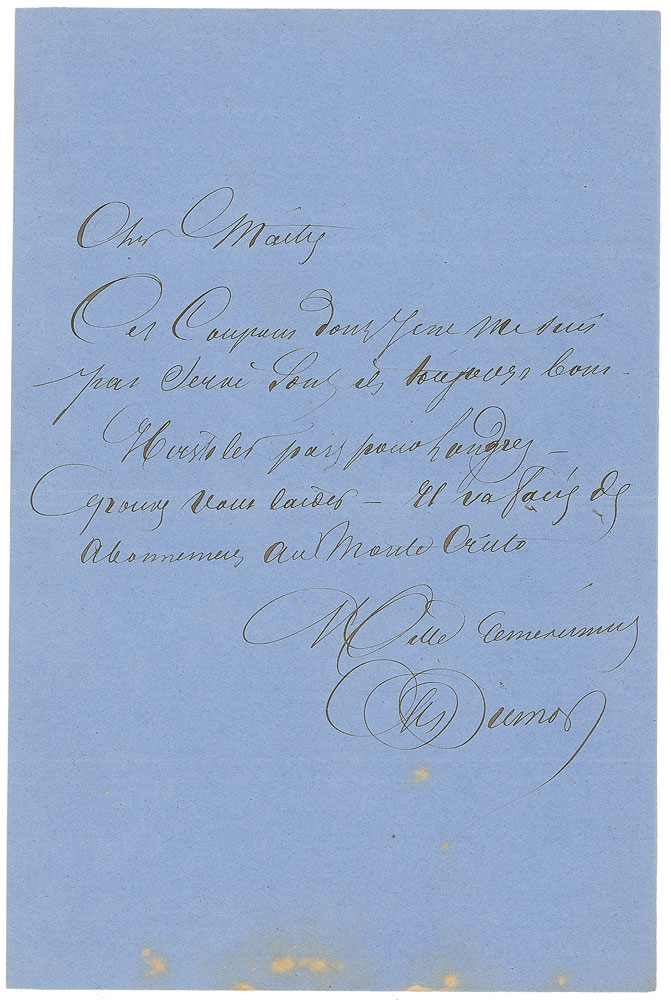 Cher Maître
Ces Coupons dont je ne me suis
pas servi sont ils toujours bons.
part pour Londres –
pouvez vous l'aider – Il va faire des
Abonnements au Monte Cristo
Mille remerciments
Alex Dumas